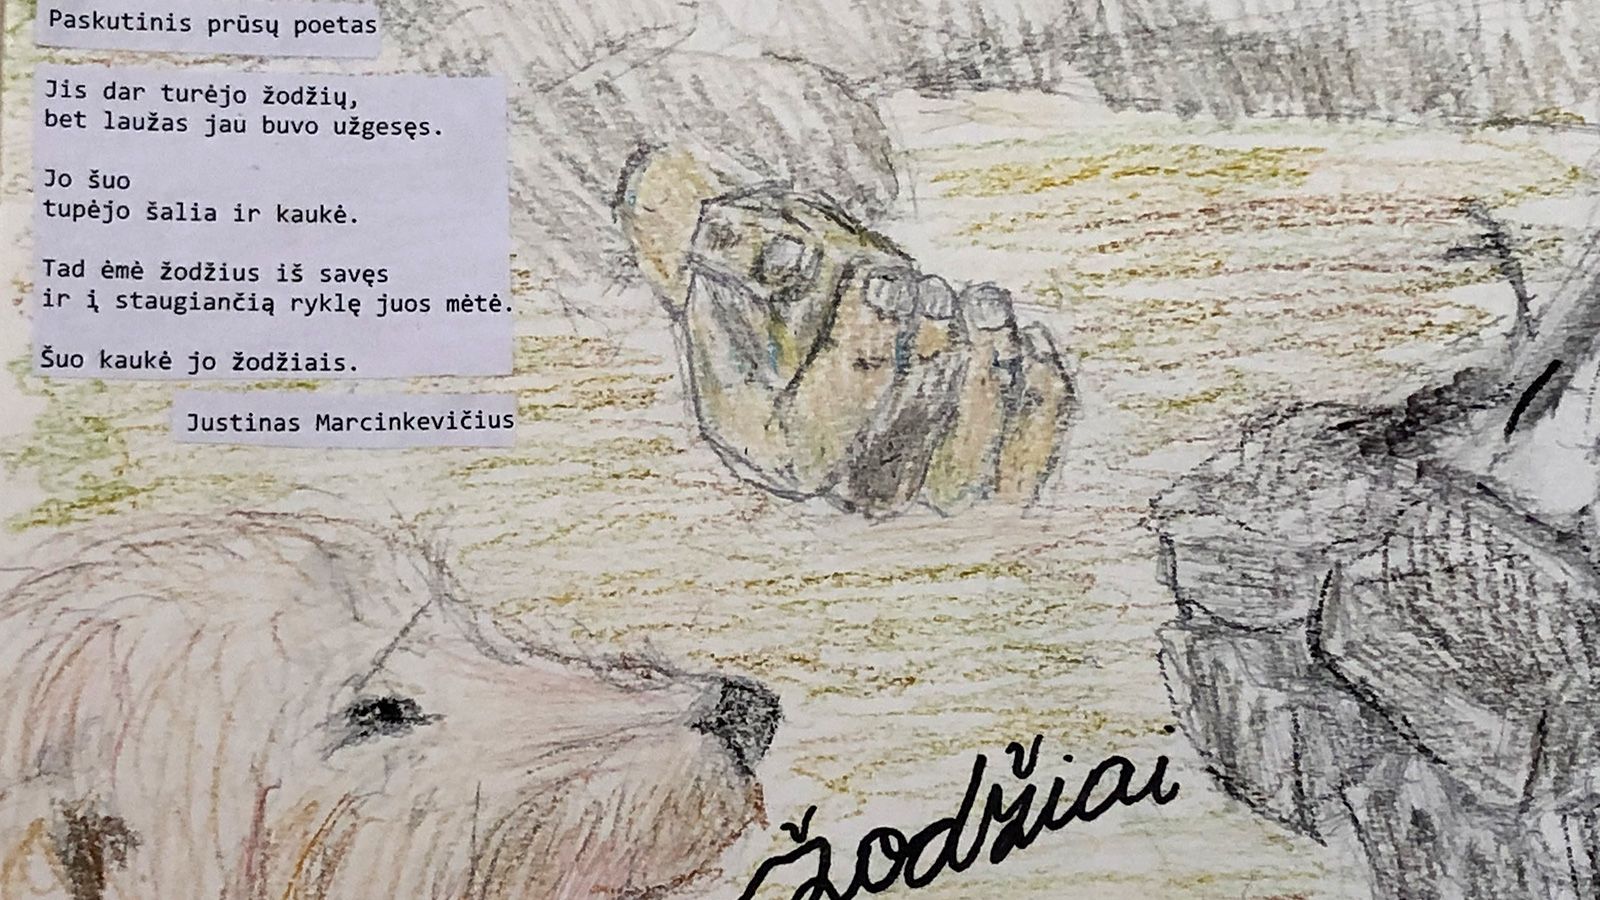 Paskutinis prūsų poetas
Jis dar turėjo žodžių,
bet laužas jau buvo užgesęs.
Jo šuo
tupėjo šalia ir kaukė.
Tad ėmė žodžius iš savęs
ir į staugiančią ryklę juos mėtė.
Šuo kaukė jo žodžiais.
Justinas Marcinkevičius
Žodžiai